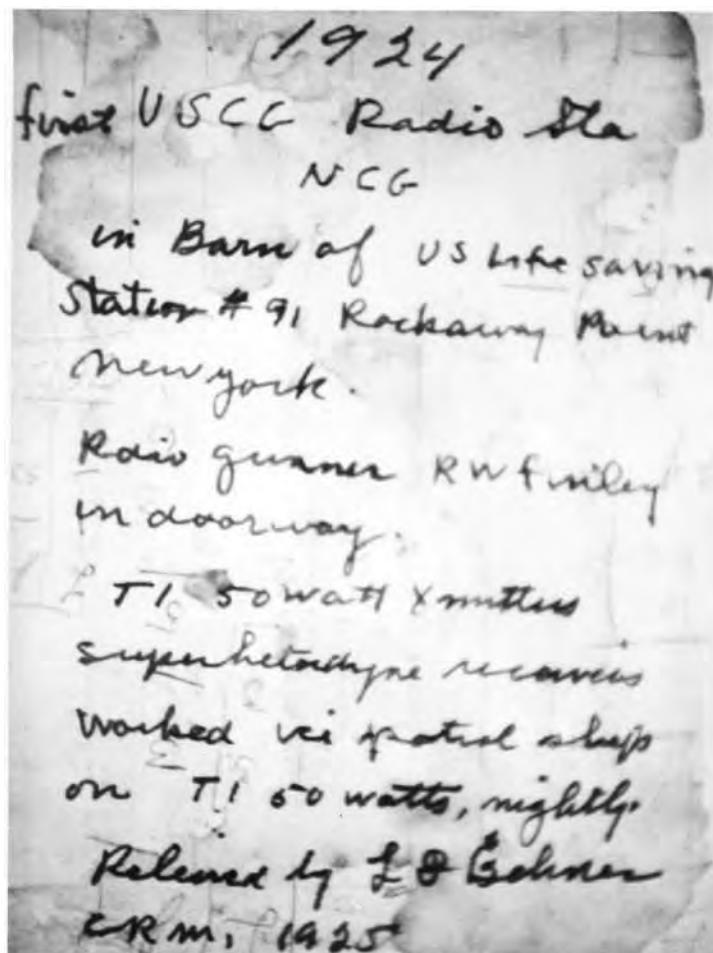 1924
first USCG Radio Sta
NCG
in Barn of US Life saving
Station # 91 Rockaway Point
New york.
Rdio gunner RW Finley
in doorway.
T1 50 watt Xmitters
superhetodyne receivers
worked ice patrol ships
on T1 50 watts, nightly.
Relieved by L
CRM, 1925